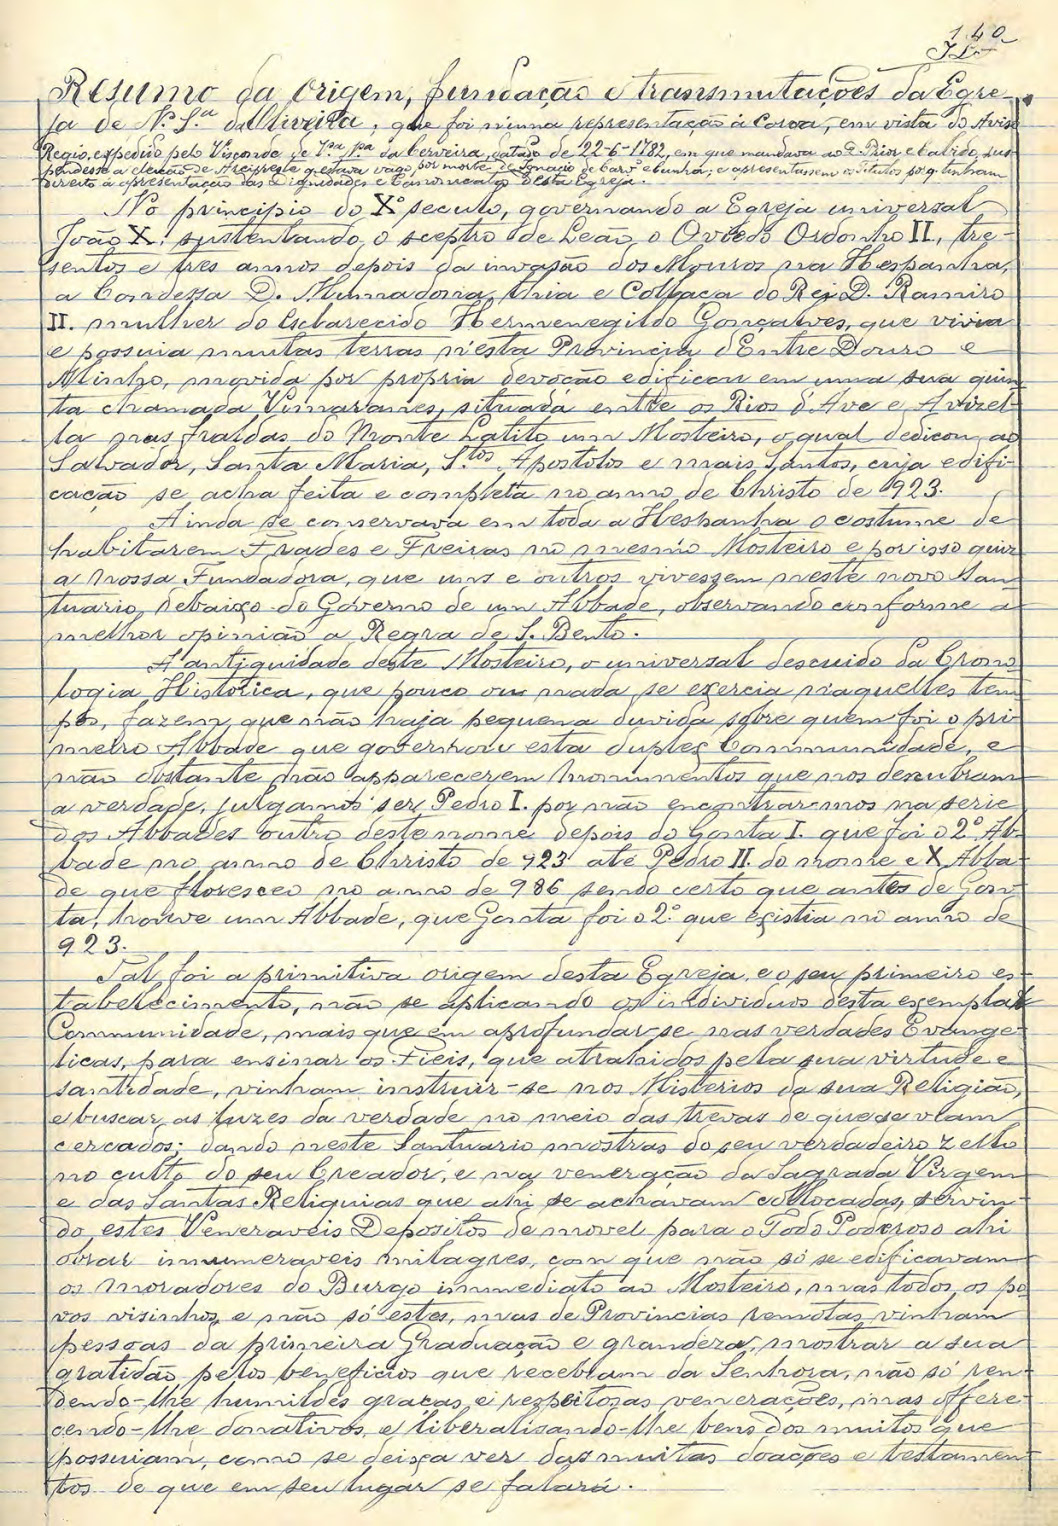 140
Resumo da origem, fundação e transmutações da Egre-
ja de N. S.ª da Oliveira, que foi n'uma representação á Coroa, em vista do Aviso
Regio, expedido pelo Visconde de V.ª N.ª da Cerveira, datado de 22-6-1782, em que mandava ao D. Prior e Cabido, sus-
pendesse a eleição de Arcipreste q. estava vago, por morte de Ignacio de Carv.º e Cunha; e apresentassem os titulos por q. tinham
direito á apresentação das Dignidades e Canonicatos d'esta Egreja.
No principio do X.º seculo, governando a Egreja universal
João X: sustentando o sceptro de Leão, o Oviedo Ordonho II., tre-
sentos e tres annos depois da invasão dos Mouros na Hespanha,
a Condessa D. Mumadona, thia e Collaça do Rei D. Ramiro
II. mulher do Esclarecido Hermenegildo Gonçalves, que vivia
e possuia muitas terras n'esta Provincia d'Entre Douro e
Minho, movida por propria devoção edificou em uma sua quin-
ta chamada Vimaranes, situada entre os Rios d'Ave e Avizel-
la nas fraldas do Monte Latito um Mosteiro, o qual dedicou ao
Salvador, Santa Maria, S.tos Apostolos e mais Santos, cuja edifi-
cação se acha feita e completa no anno de Christo de 923.
Ainda se conservava em toda a Heshanha o costume de
habitarem Frades e Freiras no mesmo Mosteiro e por isso quiz
a nossa Fundadora, que uns e outros vivessem neste novo San-
tuario, debaixo do Governo de um Abbade, observando conforme a
melhor opinião a Regra de S. Bento.
A antiguidade deste Mosteiro, o universal descuido da Crono-
logia Historica, que pouco ou nada se exercia n'aquelles tem
pos, fazem que não haja pequena duvida sobre quem foi o pri-
meiro Abbade que governou esta duplex Communidade, e
não obstante não apparecerem monumentos que nos descubram
a verdade, julgamos ser Pedro I. por não encontrar-mos na serie
dos Abbades outro deste nome depois do Gonta I. que foi o 2.º Ab-
bade no anno de Christo de 923 até Pedro II. do nome e X Abba-
de que floresceo no anno de 986 sendo certo que antes de Gon-
ta, houve um Abbade, que Gonta foi o 2.º que existia no anno de
923.
Tal foi a primitiva origem desta Egreja, e o seu primeiro es-
tabelecimento, não se aplicando os individuos desta exemplar
Communidade, mais que em aprofundar-se nas verdades Evange-
licas, para ensinar os Fieis, que atrahidos pela sua virtude e
santidade, vinham instruir-se nos Misterios da sua Religião,
e buscar as luzes da verdade no meio das trevas de que se viam
cercados; dando neste Santuario mostras do seu verdadeiro zelho
no culto do seu Creador, e na veneração da Sagrada Virgem
e das Santas Reliquias que ahi se achavam collocadas, servin-
do estes Veneraveis Depositos de movel para o Todo Poderoso ahi
obrar innumeraveis milagres, com que não só se edificavam
os moradores do Burgo immediato ao Mosteiro, mas todos os po-
vos visinhos, e não só estes, mas de Provincias remotas vinham
pessoas da primeira Graduação e grandeza, mostrar a sua
gratidão pelos beneficios que recebiam da Senhora, não só ren-
dendo-lhe humildes graças e respeitosas venerações, mas offere-
cendo-lhe donativos, e liberalisando-lhe bens dos muitos que
possuiam, como se deixa ver das muitas doações e testamen-
tos de que em seu lugar se falará.